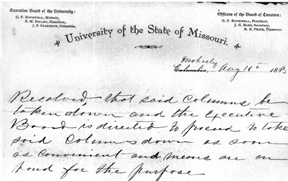 Executive Board of the University:
G. F. ROTHWELL, Moberly,
J. P. CLARKSON, Columbia.
Officers of the Board of Curators:
G. F. ROTHWELL, President,
B. R. PRICE, Treasurer.
University of the State of Missouri.
Moberly
Columbia, Aug 18th 188
Resolved, that said Columns be
taken down and the Executive
Board is directed to proceed to take
said Columns down as soon
as convenient and means are on
hand for the purpose